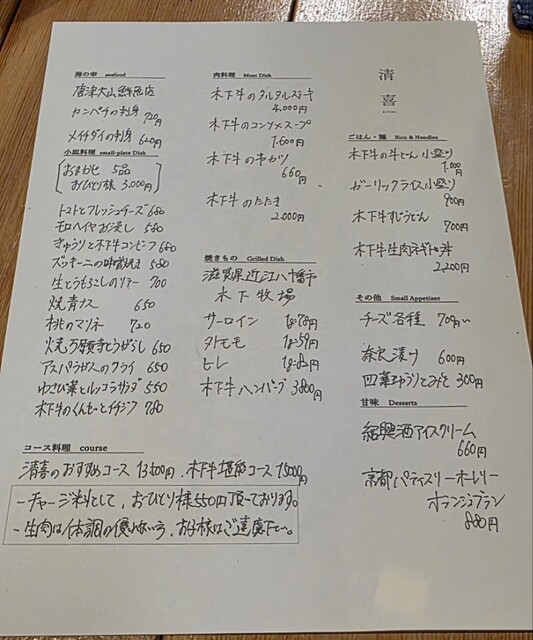 清喜
海の幸 seafood
唐津大山鮮魚店
カンパチの刺身 720円
メイチダイの刺身 620円
小皿料理 small-plate Dish
おまかせ 5品
おひとり様 3,000円
トマトとフレッシュチーズ 680
モロヘイヤお浸し 580
きゅうりと木下牛コンビーフ 680
ズッキーニの味噌焼き 580
生とうもろこしのソテー 700
焼青ナス 650
桃のマリネ 720
焼万願寺とうがらし 650
アスパラガスのフライ 650
わさび菜とルッコラサラダ 550
木下牛のくんせいとイチジク 780
肉料理 Meat Dish
木下牛のタルタルステーキ
4,000円
木下牛のコンソメスープ
1,600円
木下牛の串カツ
660円
木下牛のたたき
2,000円
焼きもの Grilled Dish
滋賀県近江八幡市
木下牧場
サーロイン 1g=78円
ウチモモ 1g=59円
ヒレ 1g=83円
木下牛ハンバーグ 3,800円
ごはん・麺 Rice & Noodles
木下牛の牛どん 小盛り
1,000円
ガーリックライス 小盛り
900円
木下牛すじうどん
900円
木下牛生肉ネギトロ丼
2,200円
その他 Small Appetizer
チーズ各種 700円〜
奈良漬け 600円
四葉きゅうりとみそ 300円
甘味 Desserts
紹興酒アイスクリーム
660円
京都パティスリーオーレリー
オランジュブラン
880円
コース料理 course
清喜のおすすめコース 13,500円、木下牛堪能コース 15,000円
－チャージ料として、おひとり様550円頂いております。
－生肉は体調の優れない方、お子様はご遠慮下さい。